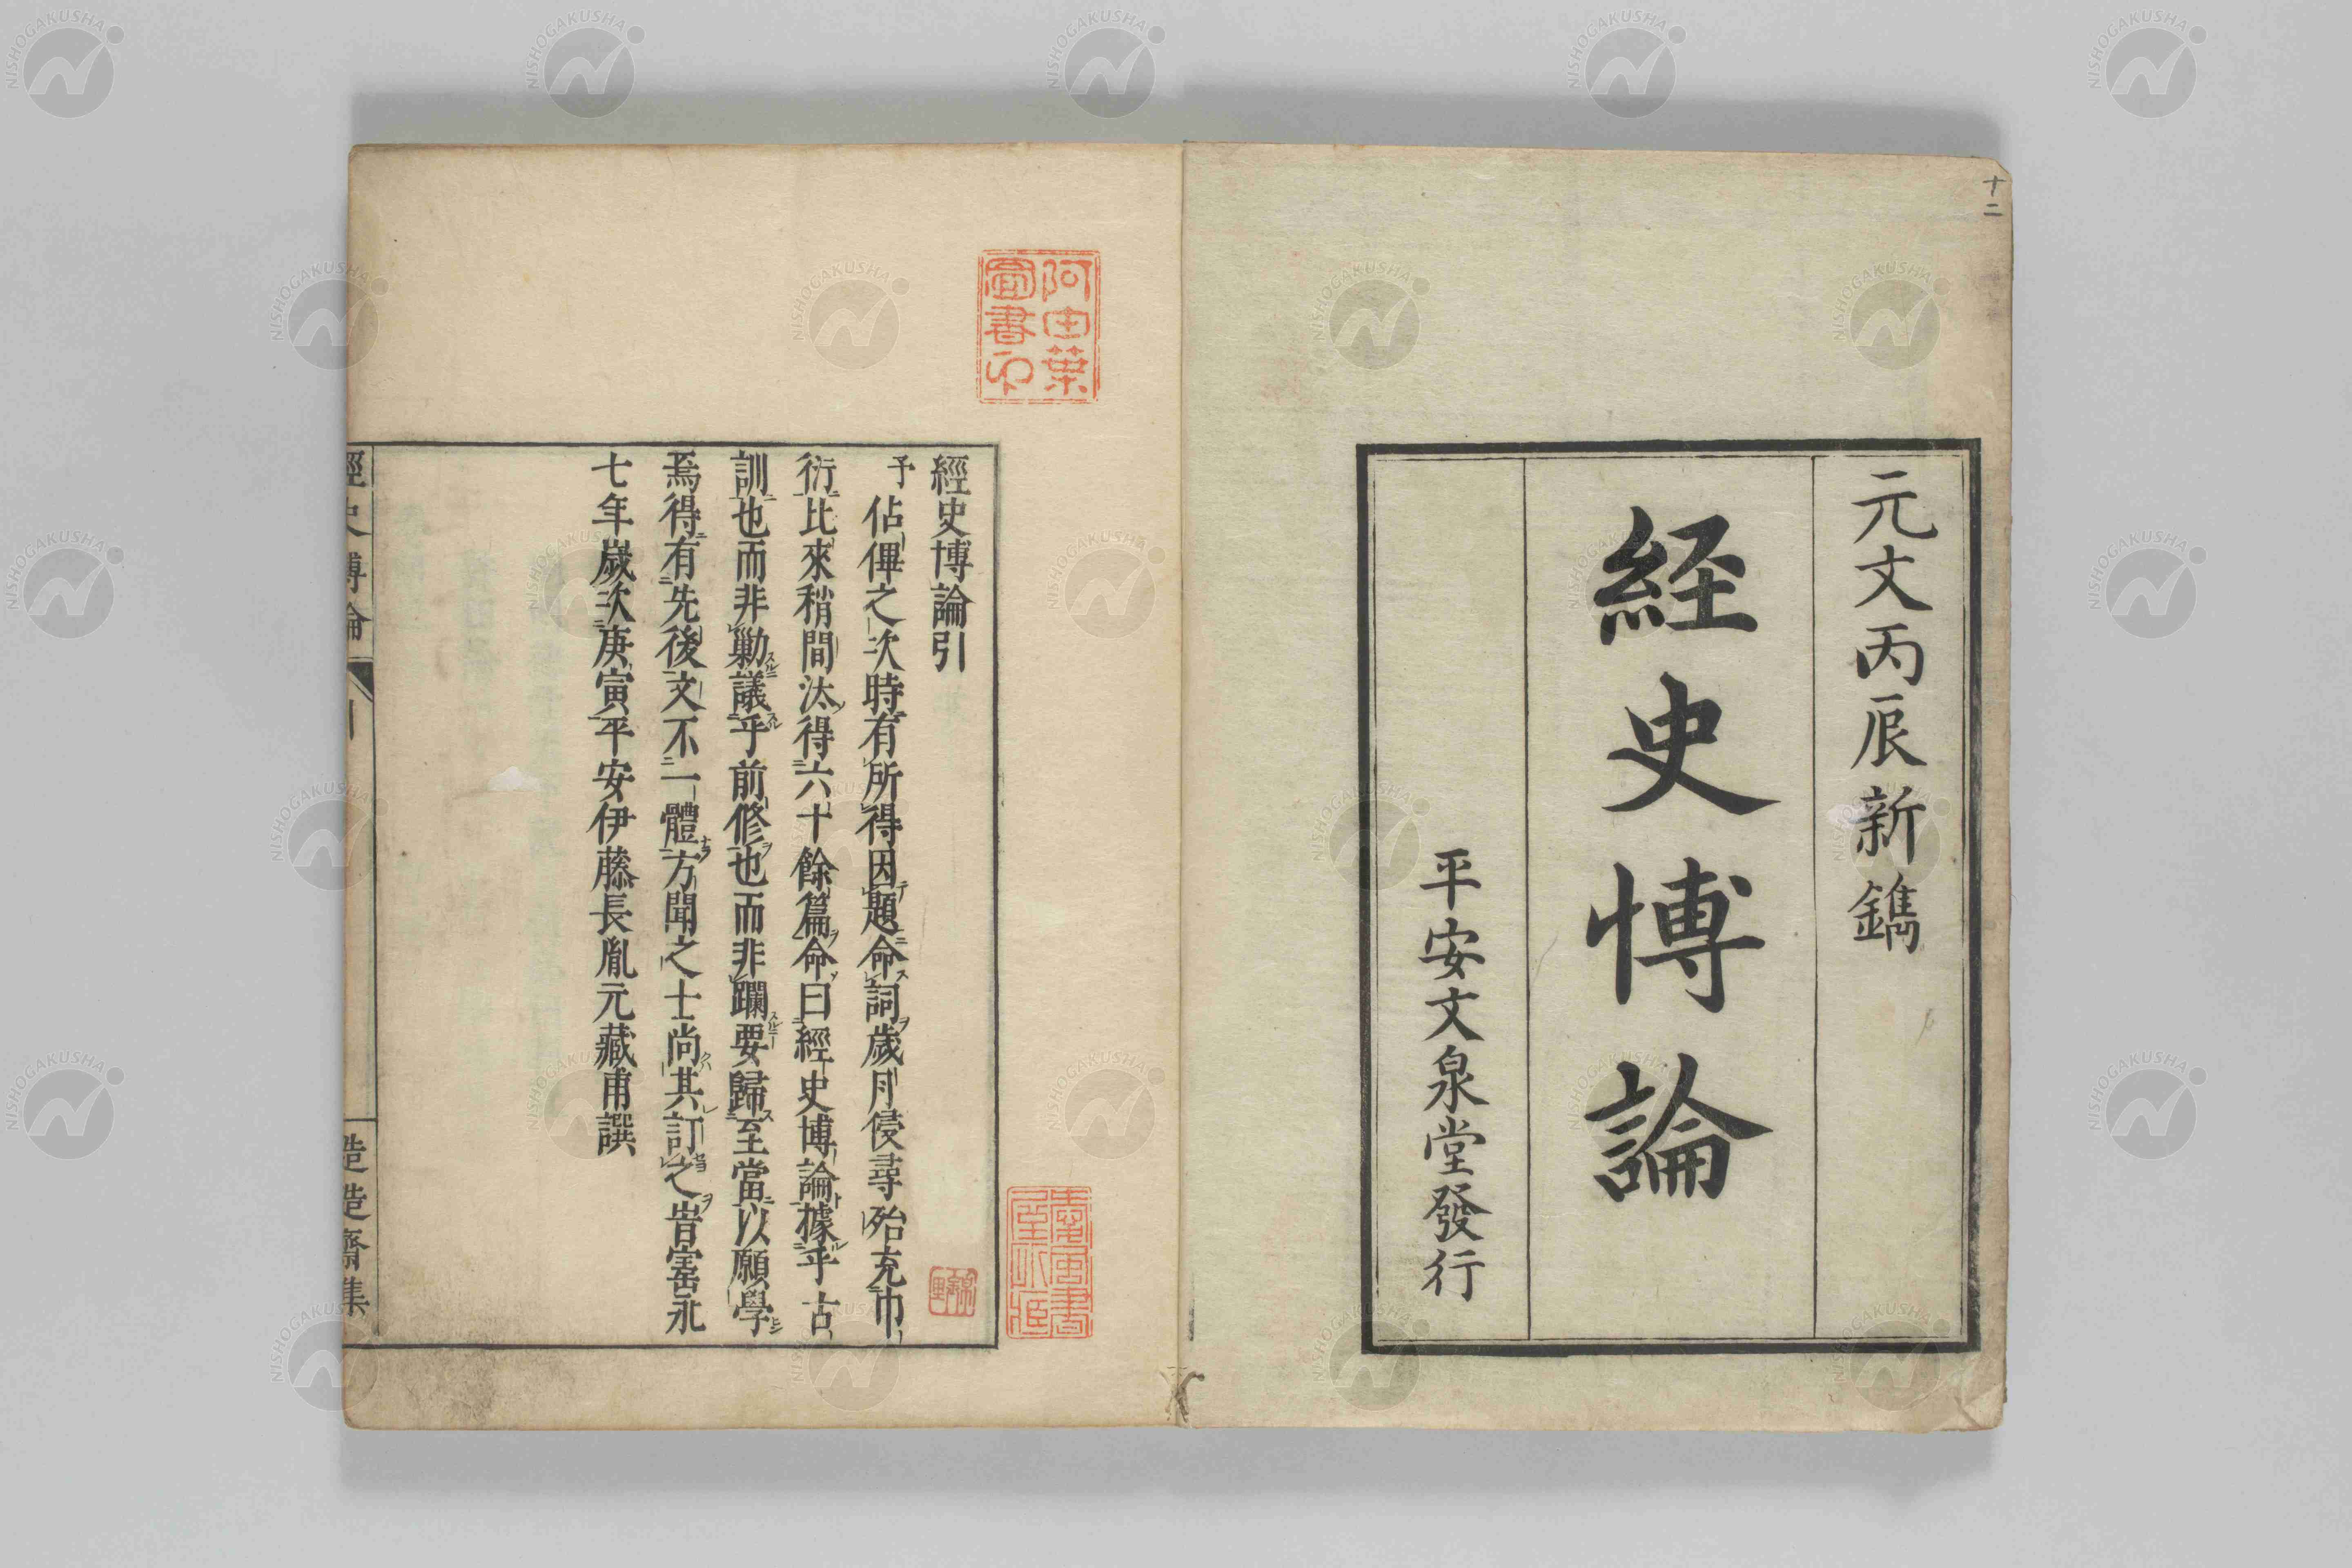 十二
元文丙辰新鐫
経史博論
平安文泉堂發行
阿由葉
圖書印
經史博論引
予佔俾之次時有所得因題命詞歲月侵尋殆充巾
衍比來稍間汰得六十餘篇命曰經史博論據乎古
訓也而非勦議乎前修也而非躝要歸至當以願學
焉得有先後文不一體方聞之士尚其訂之旹寳永
七年歲次庚寅平安伊藤長胤元藏甫譔
經史博論
造造齋集
NISHOGAKUSHA